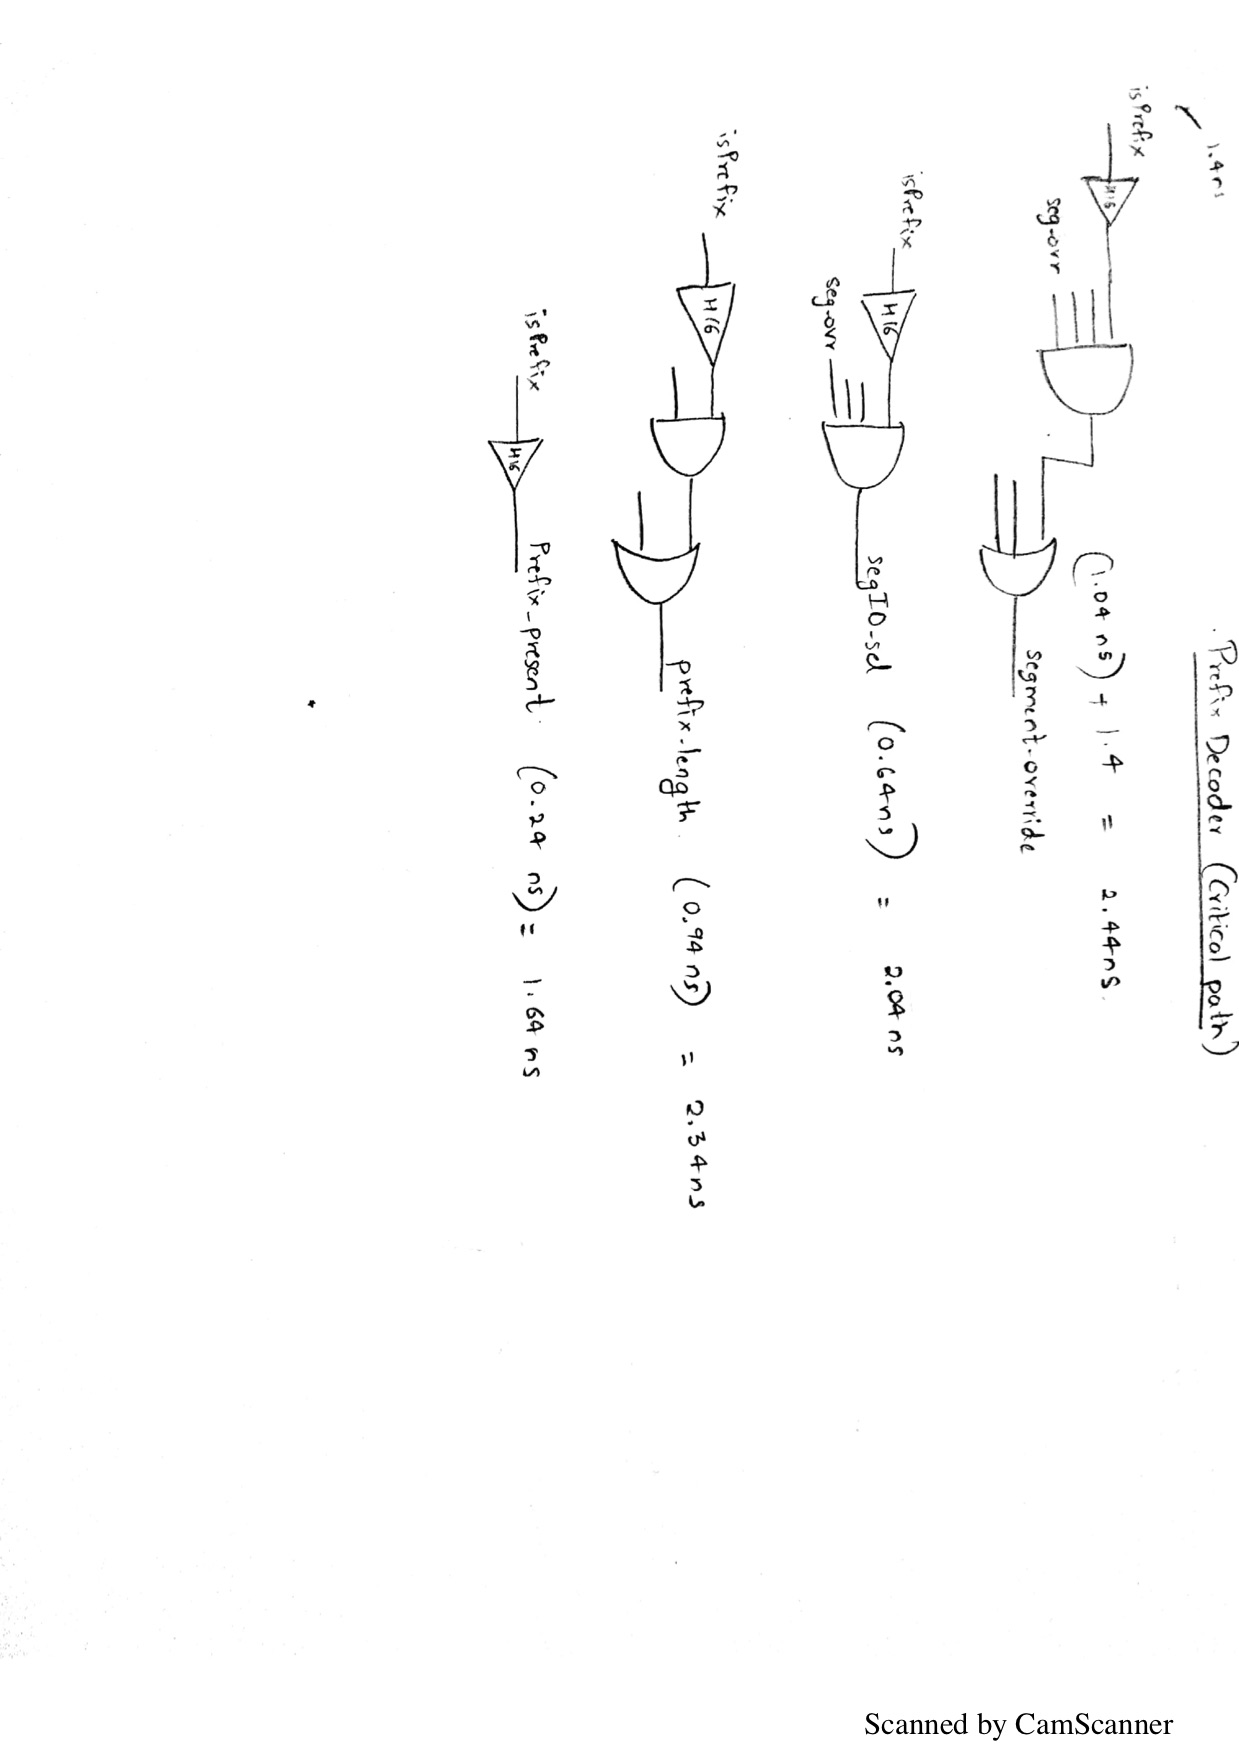 Prefix Decoder (Critical path)
1.4ns
isPrefix
H16
seg-ovr
(1.04 ns) + 1.4 = 2.44ns.
segment-override
isPrefix
H16
seg-ovr
segID-sel (0.64ns) = 2.04 ns
isPrefix
H16
prefix-length. (0.94 ns) = 2.34ns
isPrefix
H16
Prefix_present. (0.24 ns) = 1.64 ns
Scanned by CamScanner